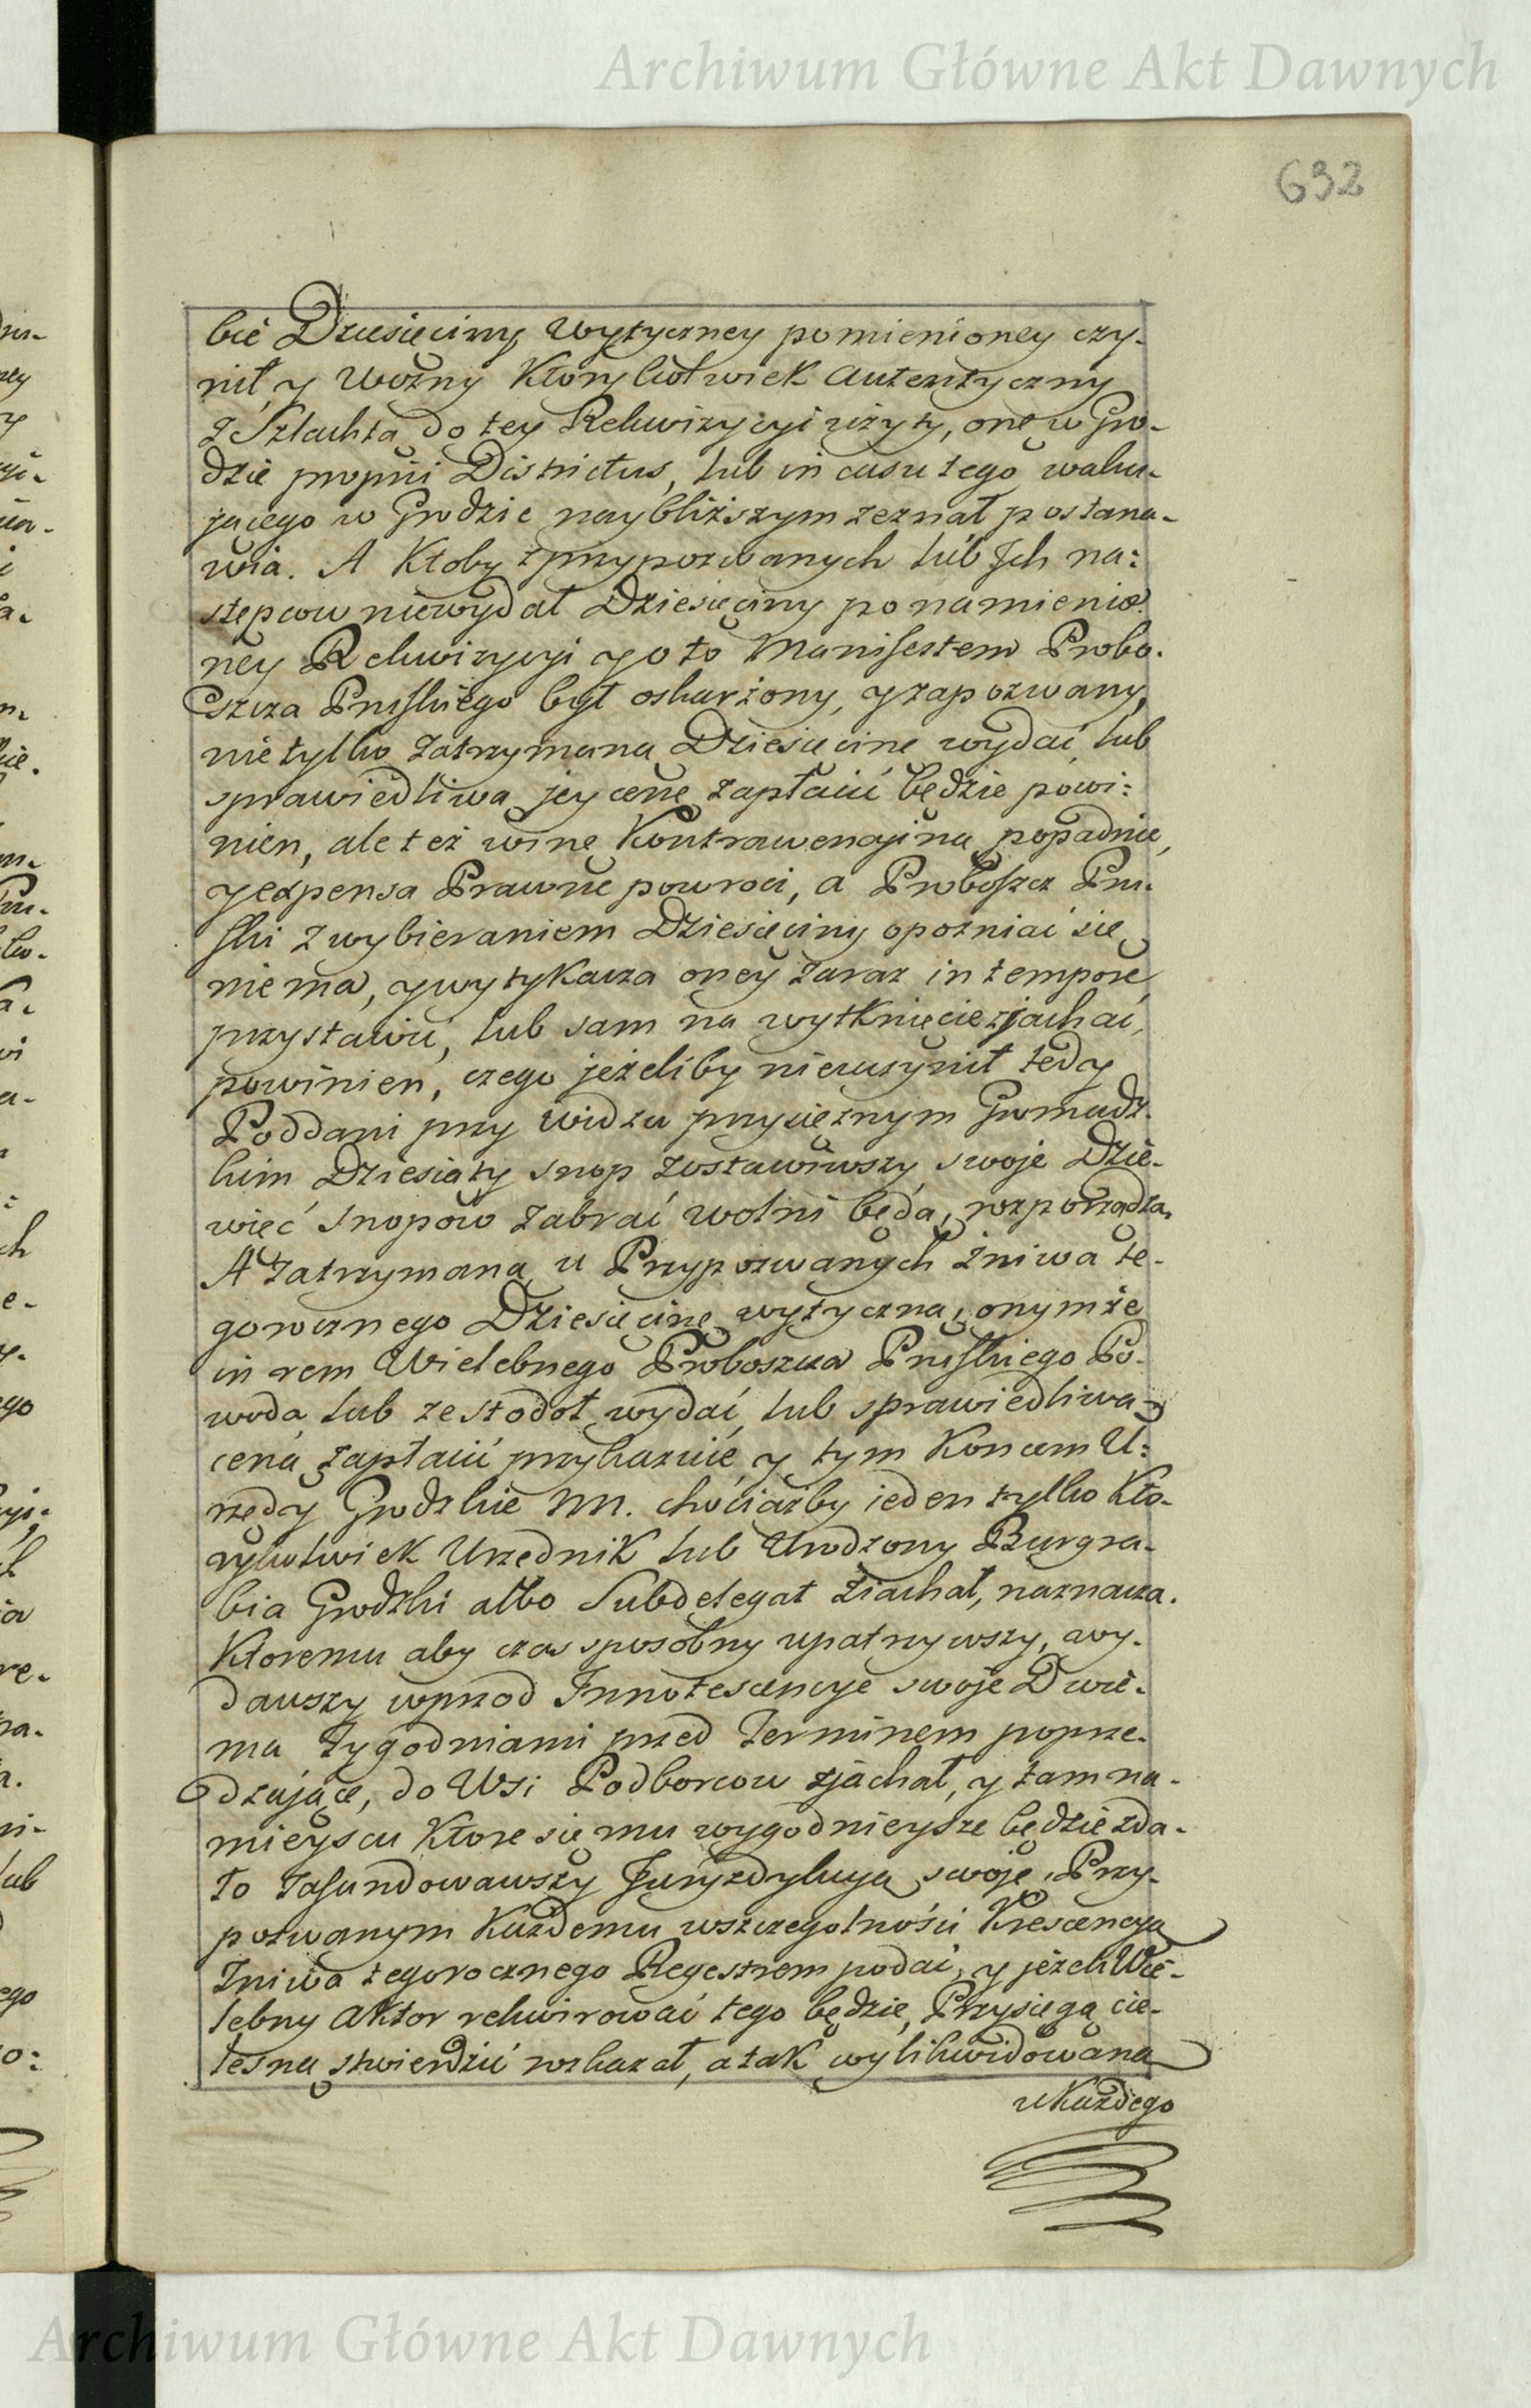 Archiwum Główne Akt Dawnych
632
bie Dziesięciny wytyczney pomienioney czy-
nił, y Wozny Ktorykolwiek autentyczny
z Szlachtą do tey Rekwizycyi użyty, onę w Gro-
dzie proprii Districtus, lub in casu tego waku-
jącego w Grodzie naybliższym zeznał postana-
wia. A Ktoby z przypozwanych lub Ich na:
stępcow niewydał Dziesięciny po namienio-
ney Rekwizycyi y o to Manifestem Probo-
szcza Pruskiego był oskarżony, y zapozwany,
nie tylko zatrzymaną Dziesięcinę wydać lub
sprawiedliwą jey cenę zapłacić będzie powi:
nien, ale też winę Kontrawencyiną popadnie,
y expensa Prawne powroci, a Proboszcz Pru-
ski z wybieraniem Dziesięciny opozniać się
nie ma, y wytykacza oney zaraz in tempore
przystawić, lub sam na wytknięcie zjachać,
powinien, czego jeżeliby nieuczynił tedy
Poddani przy widzu przysiężnym Gromadz-
kim Dziesiąty snop zostawiwszy swoje Dzie-
więć snopow zabrać wolni będą, rozporządza,
A zatrzymaną u Przypozwanych żniwa te-
gorocznego Dziesięcinę wytyczną, onymże
in rem Wielebnego Proboszcza Pruskiego Po-
woda lub ze stodoł wydać, lub sprawiedliwą
ceną zapłacić przykazuie, y tym Koncem U:
rzędy Grodzkie NN. chociażby ieden tylko Kto-
rykolwiek Urzędnik lub Urodzony Burgra-
bia Grodzki albo Subdelegat ziachał, naznacza.
Ktoremu aby czas sposobny upatrzywszy, wy-
dawszy wprzod Innotescencye swoje Dwie-
ma tygodniami przed Terminem poprze-
dzające, do Wsi Podborcow zjachał, y tam na-
mieyscu Ktore się mu wygodnieysze będzie zda-
ło zafundowawszy Juryzdykcyą swoję, Przy-
pozwanym Każdemu wszczegolności Krescencyą
Żniwa tegorocznego Regestrem podać, y jeżeli Wie-
lebny Aktor rekwirować tego będzie, Przysięgą cie-
lesną stwierdzić rozkazał, a tak wylikwidowaną
u Każdego
Archiwum Główne Akt Dawnych